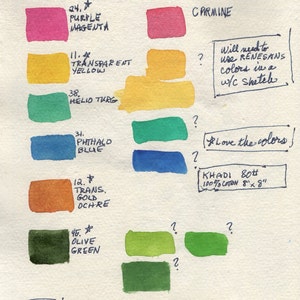 24. *
PURPLE
MAGENTA
CARMINE
11. *
TRANSPARENT
YELLOW
?
Will need to
use RENESANS
colors in a
w/c sketch
38.
HELIO TURQ
?
31.
PHTHALO
BLUE
?
* Love the colors!
12. *
TRANS.
GOLD
OCHRE
KHADI 80#
100% COTTON 8" x 8"
45. *
OLIVE
GREEN
?
?
?